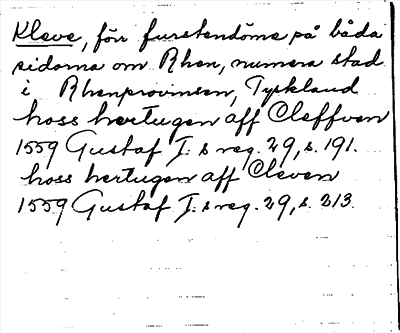 Kleve, förr furstendöme på båda
sidorna om Rhen, numera stad
i Rhenprovinsen, Tyskland
hoss hertugen aff Cleffven
1559 Gustaf I:s reg. 29, s. 191.
hoss hertugen aff Cleven
1559 Gustaf I:s reg. 29, s. 213.